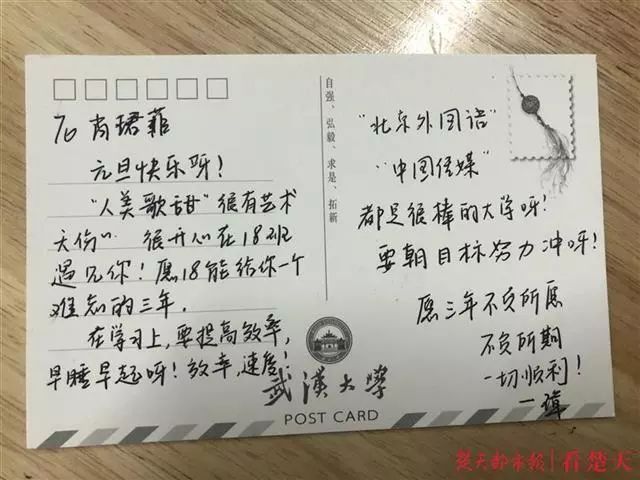 To 肖珺菲
元旦快乐呀!
"人美歌甜"很有艺术
天份~ 很开心在18班
遇见你!愿18能给你一个
难忘的三年.
在学习上,要提高效率,
早睡早起呀!效率,速度!
自强、弘毅、求是、拓新
"北京外国语"
"中国传媒"
都是很棒的大学呀!
要朝目标努力冲呀!
愿三年不负所愿
不负所期
一切顺利!
一
武漢大學
POST CARD
楚天都市报|看楚天